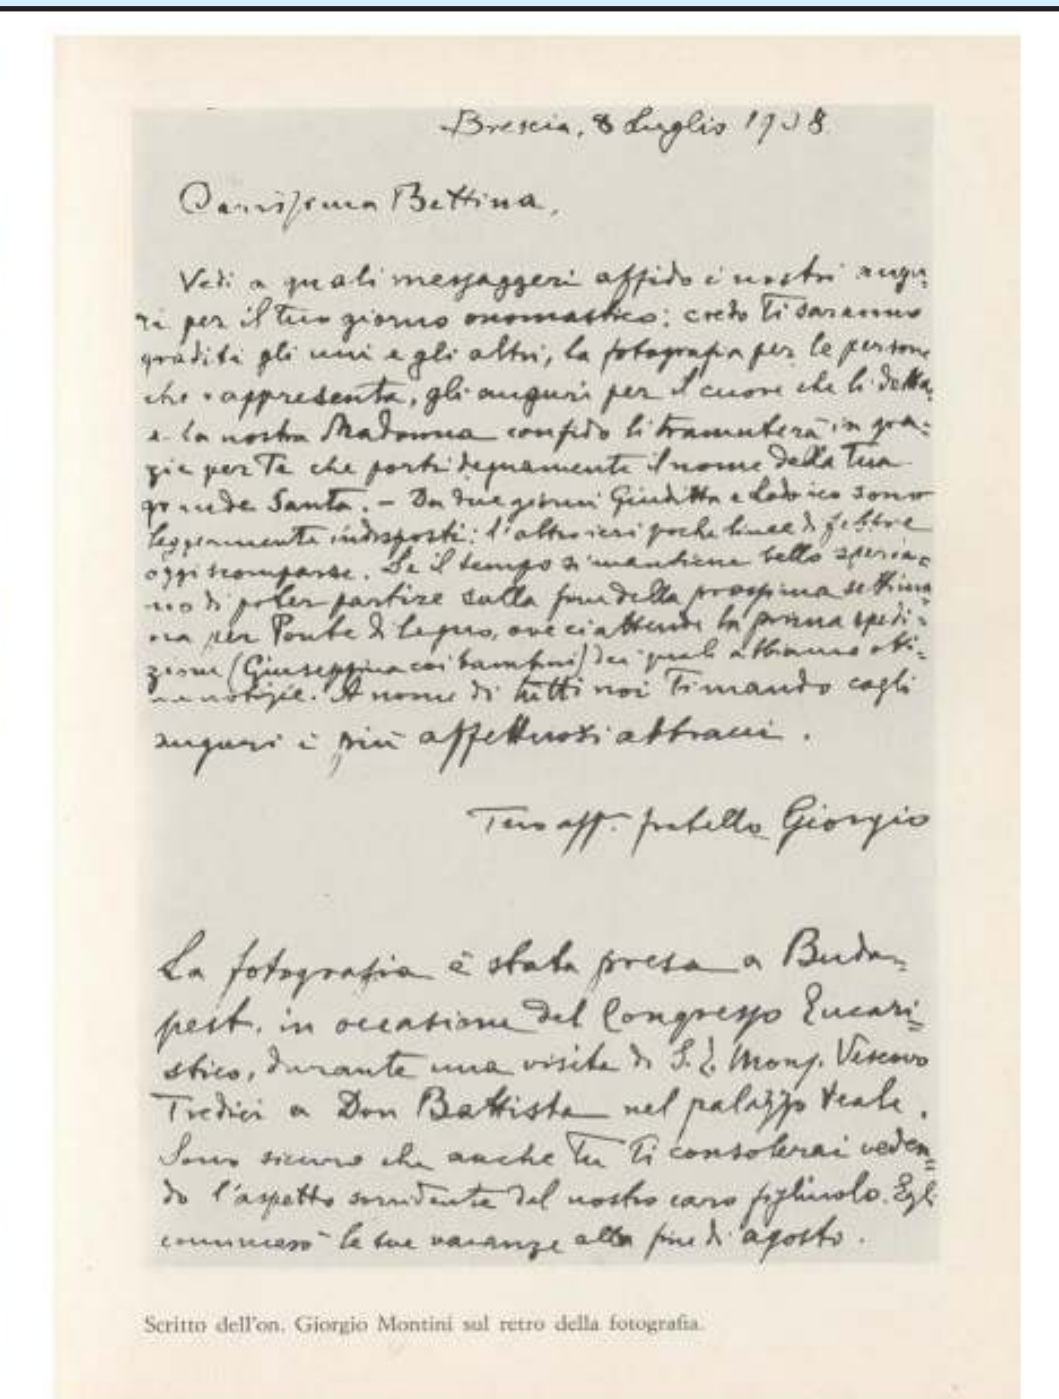 Brescia, 8 Luglio 1938
Carissima Bettina,
Vedi a quali messaggeri affido i nostri augu-
ri per il tuo giorno onomastico: credo Ti saranno
graditi gli uni e gli altri, la fotografia per le persone
che rappresenta, gli auguri per il cuore che li detta,
e la nostra Madonna confido li tramuterà in gra=
zie per Te che porti degnamente il nome della tua
grande Santa. – Da due giorni Giuditta e Lodovico sono
leggermente indisposti: l'altro ieri poche linee di febbre
oggi scomparse. Se il tempo si mantiene bello speria=
mo di poter partire sulla fine della prossima settima
na per Ponte di Legno, ove ci attende la prima spedi=
zione (Giuseppina coi bambini) dei quali abbiamo otti=
me notizie. A nome di tutti noi Ti mando cogli
auguri i più affettuosi abbracci.
Tuo aff. fratello Giorgio
La fotografia è stata presa a Buda=
pest. in occasione del Congresso Eucari=
stico, durante una visita di S. E. Mons. Vescovo
Tredici a Don Battista nel palazzo reale.
Sono sicuro che anche Tu Ti consolerai veden=
do l'aspetto sorridente del nostro caro figliuolo. Egli
comincerà le sue vacanze alla fine di agosto.
Scritto dell'on. Giorgio Montini sul retro della fotografia.